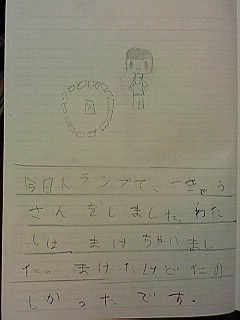 今日トランプで、一きゅう
さんをしました。わた
しは、まけちゃいまし
た。まけたけどたの
しかったです。